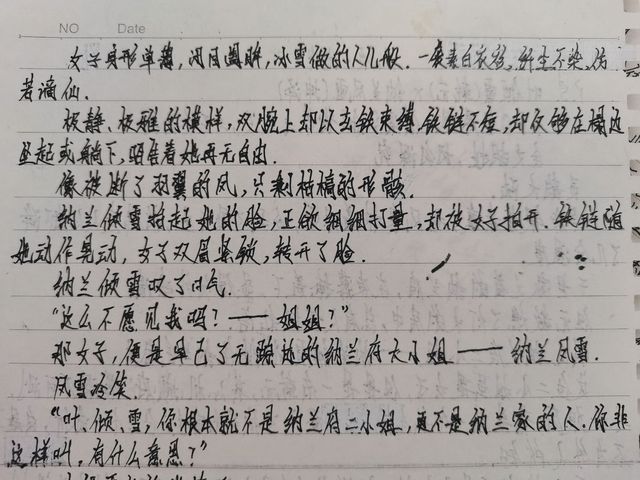 NO Date
女子身形单薄,闭目阖眸,冰雪做的人儿般.一袭素白衣衫,纤尘不染,仿
若谪仙.
极静、极雅的模样,双腕上却以玄铁束缚.铁链不短,却仅够在榻边
坐起或躺下,昭告着她再无自由.
像被断了羽翼的凤,只剩枯槁的形骸.
纳兰倾雪抬起她的脸,正欲细细打量,却被女子拍开.铁链随
她动作晃动,女子双眉紧锁,转开了脸.
纳兰倾雪叹了口气.
“这么不愿见我吗?——姐姐?”
那女子,便是早已了无踪迹的纳兰府大小姐——纳兰风雪.
风雪冷笑.
“叶、倾、雪,你根本就不是纳兰府二小姐,更不是纳兰家的人.你非
这样叫,有什么意思?”